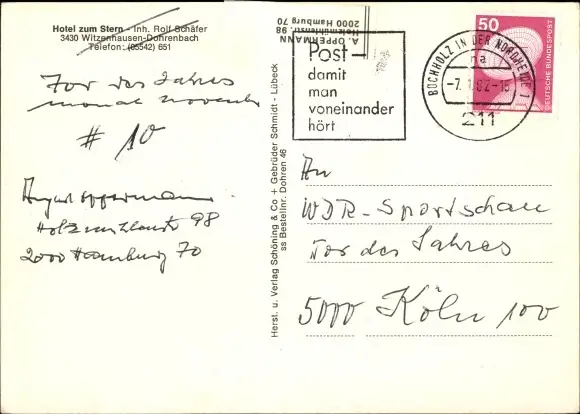 Hotel zum Stern - Inh. Rolf Schäfer
3430 Witzenhausen-Dohrenbach
Telefon: (05542) 651
Tor des Jahres
monat november
# 10
August Oppermann
Holzmühlenstr 98
2000 Hamburg 70
Herst. u. Verlag Schöning & Co + Gebrüder Schmidt - Lübeck
ss Bestellnr. Dohren 46
A. OPPERMANN
Holzmühlenstr. 98
2000 Hamburg 70
Post -
damit
man
voneinander
hört
BUCHHOLZ IN DER NORDHEIDE 1
na
-7.1.82-18
211
50
DEUTSCHE BUNDESPOST
An
WDR-Sportschau
Tor des Jahres
5000 Köln 100